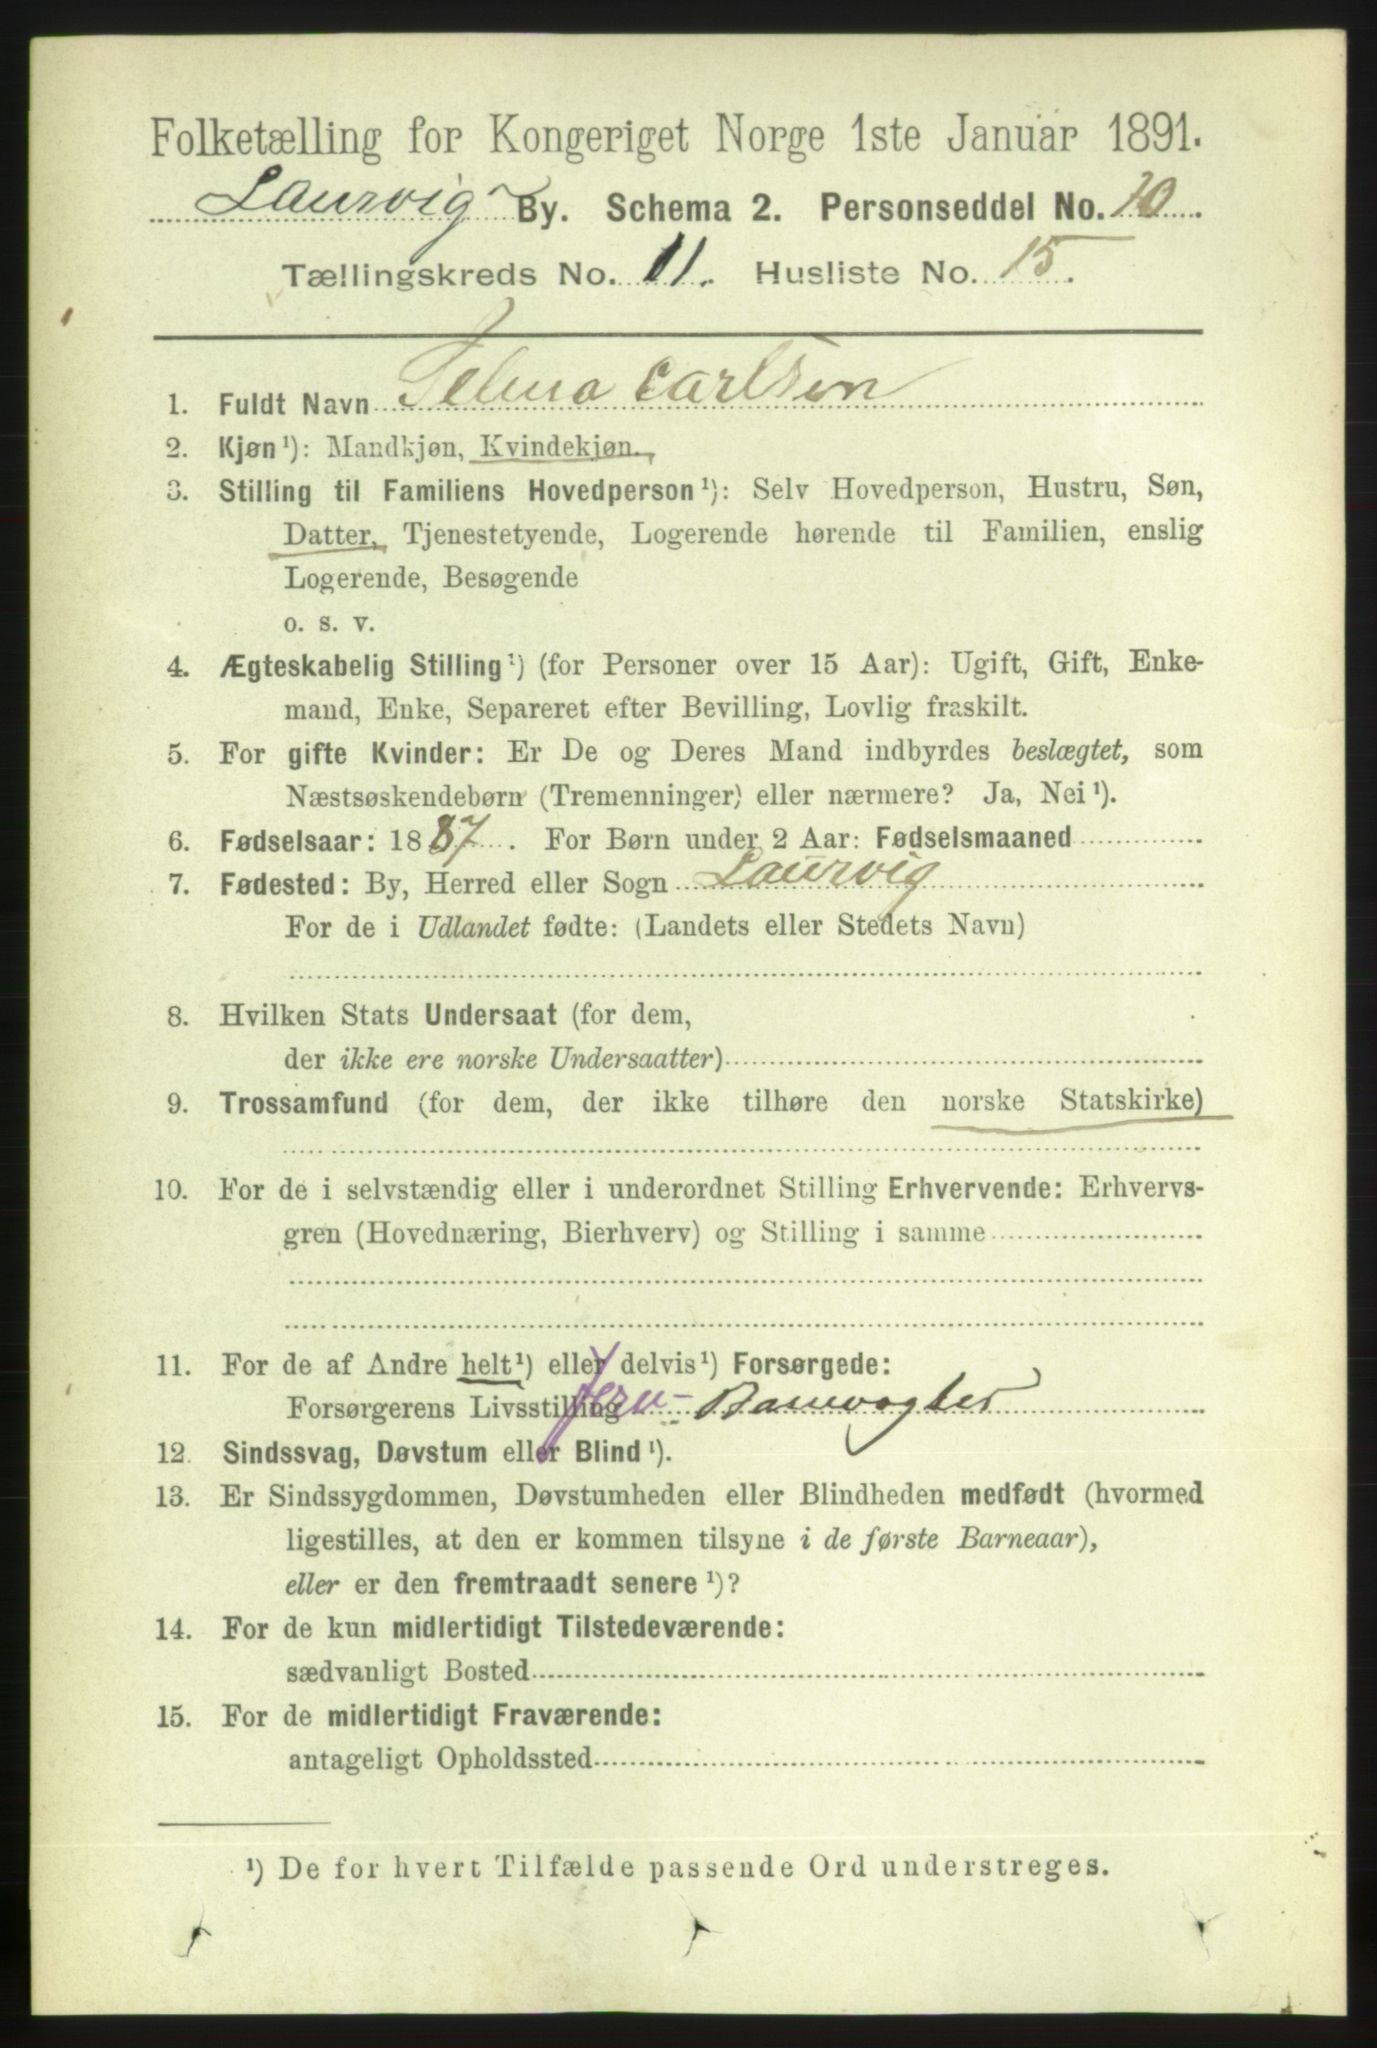 Folketælling for Kongeriget Norge 1ste Januar 1891.
Laurvig By. Schema 2. Personseddel No. 10.
Tællingskreds No. 11. Husliste No. 15.
1. Fuldt Navn Telma Carlsen
2. Kjøn¹): Mandkjøn, Kvindekjøn.
3. Stilling til Familiens Hovedperson¹): Selv Hovedperson, Hustru, Søn,
Datter, Tjenestetyende, Logerende hørende til Familien, enslig
Logerende, Besøgende
o. s. v.
4. Ægteskabelig Stilling¹) (for Personer over 15 Aar): Ugift, Gift, Enke-
mand, Enke, Separeret efter Bevilling, Lovlig fraskilt.
5. For gifte Kvinder: Er De og Deres Mand indbyrdes beslægtet, som
Næstsøskendebørn (Tremenninger) eller nærmere? Ja, Nei¹).
6. Fødselsaar: 1887. For Børn under 2 Aar: Fødselsmaaned
7. Fødested: By, Herred eller Sogn Laurvig
For de i Udlandet fødte: (Landets eller Stedets Navn)
8. Hvilken Stats Undersaat (for dem,
der ikke ere norske Undersaatter)
9. Trossamfund (for dem, der ikke tilhøre den norske Statskirke)
10. For de i selvstændig eller i underordnet Stilling Erhvervende: Erhvervs-
gren (Hovednæring, Bierhverv) og Stilling i samme
11. For de af Andre helt¹) eller delvis¹) Forsørgede:
Forsørgerens Livsstilling Jern- Banevogter
12. Sindssvag, Døvstum eller Blind¹).
13. Er Sindssygdommen, Døvstumheden eller Blindheden medfødt (hvormed
ligestilles, at den er kommen tilsyne i de første Barneaar),
eller er den fremtraadt senere¹)?
14. For de kun midlertidigt Tilstedeværende:
sædvanligt Bosted
15. For de midlertidigt Fraværende:
antageligt Opholdssted
¹) De for hvert Tilfælde passende Ord understreges.